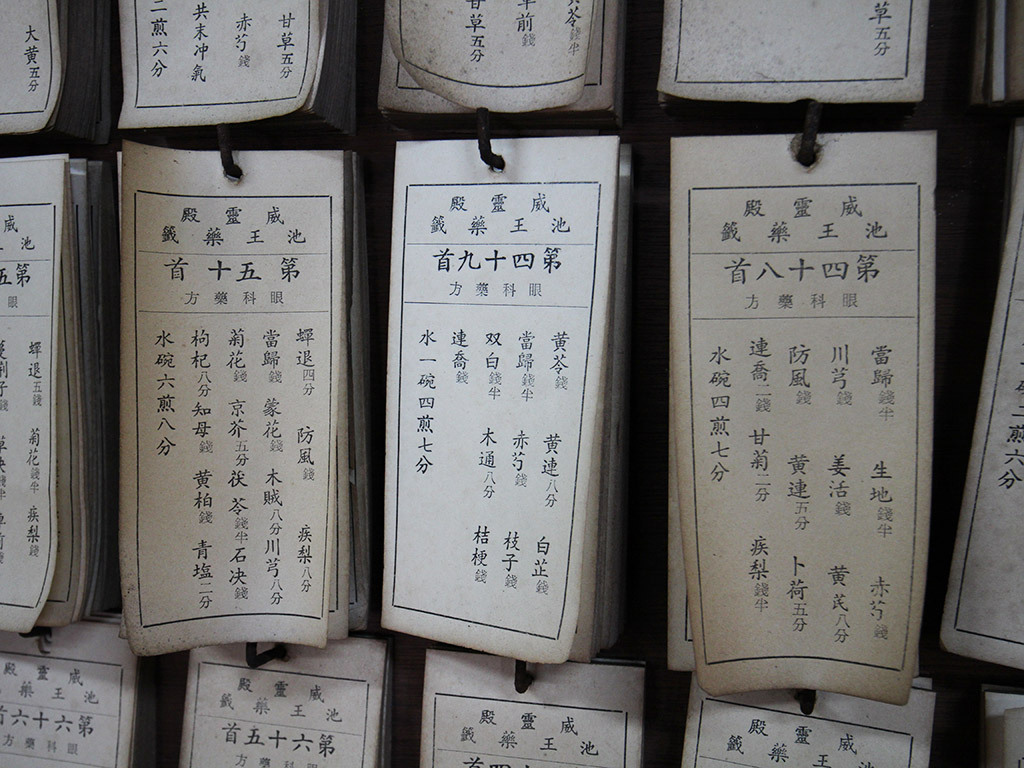 草五分
苓錢半
前錢
甘草五分
甘草五分
赤芍錢
共末冲氣
二煎六分
大黄五分
二煎六分
威靈殿
池王藥籤
第四十八首
眼科藥方
當歸錢半 生地錢半 赤芍錢
川芎錢 姜活錢 黄芪八分
防風錢 黄連五分 卜荷五分
連喬二錢 甘菊一分 疾梨錢半
水碗四煎七分
威靈殿
池王藥籤
第四十九首
眼科藥方
黄苓錢 黄連八分 白芷錢
當歸錢半 赤芍錢 枝子錢
双白錢半 木通八分 桔梗錢
連喬錢
水一碗四煎七分
威靈殿
池王藥籤
第五十首
眼科藥方
蟬退四分 防風錢 疾梨八分
當歸錢 蒙花錢 木賊八分 川芎八分
菊花錢 京芥五分 茯苓錢半 石决錢
枸杞八分 知母錢 黄柏錢 青塩二分
水碗六煎八分
威
池王
第五
眼
蟬退五錢 菊花錢半 疾梨錢
威靈殿
池王藥籤
威靈殿
池王藥籤
威靈殿
池王藥籤
第六十五首
眼科藥方
威靈殿
池王藥籤
第六十六首
眼科藥方